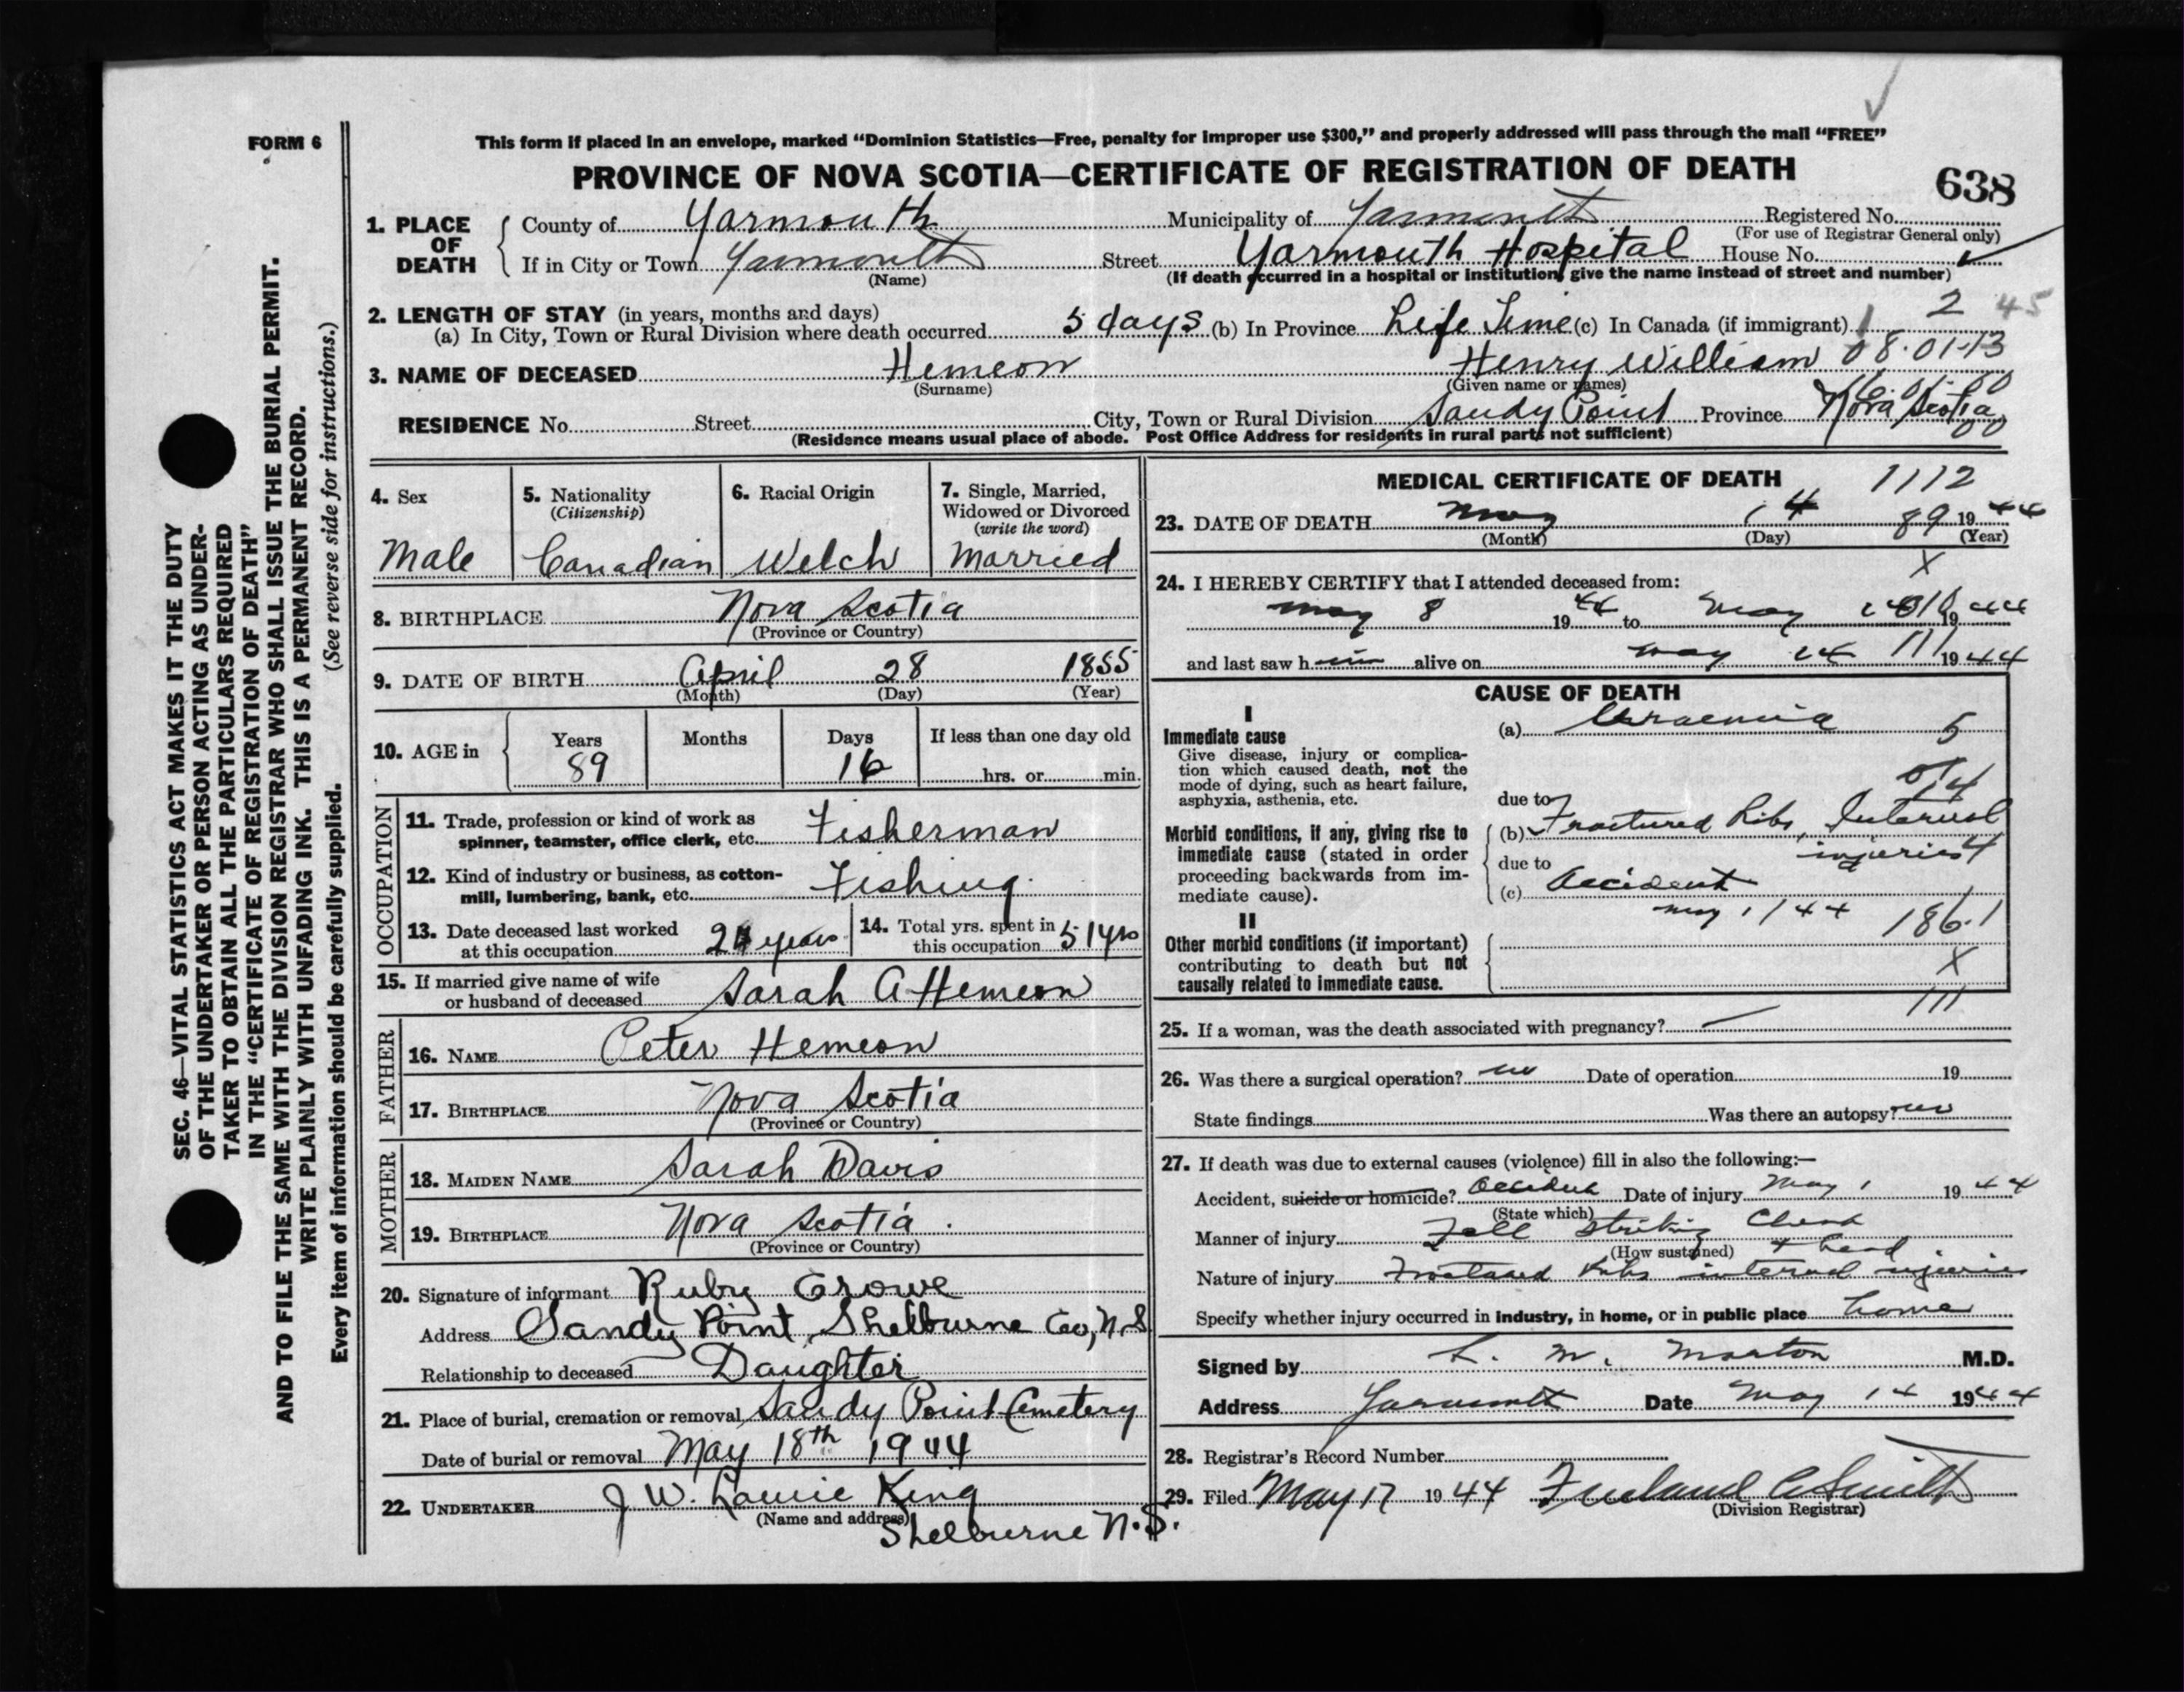 FORM 6
This form if placed in an envelope, marked “Dominion Statistics—Free, penalty for improper use $300,” and properly addressed will pass through the mail “FREE”
PROVINCE OF NOVA SCOTIA—CERTIFICATE OF REGISTRATION OF DEATH
638
1. PLACE OF DEATH
County of Yarmouth Municipality of Yarmouth Registered No.
(For use of Registrar General only)
If in City or Town Yarmouth Street Yarmouth Hospital House No.
(Name) (If death occurred in a hospital or institution, give the name instead of street and number)
2. LENGTH OF STAY (in years, months and days) 2 45
(a) In City, Town or Rural Division where death occurred 5 days (b) In Province Life Time (c) In Canada (if immigrant)
3. NAME OF DECEASED Hemeon Henry William 08.01.13
(Surname) (Given name or names)
RESIDENCE No. Street City, Town or Rural Division Sandy Point Province Nova Scotia
(Residence means usual place of abode. Post Office Address for residents in rural parts not sufficient)
SEC. 46—VITAL STATISTICS ACT MAKES IT THE DUTY
OF THE UNDERTAKER OR PERSON ACTING AS UNDER-
TAKER TO OBTAIN ALL THE PARTICULARS REQUIRED
IN THE “CERTIFICATE OF REGISTRATION OF DEATH”
AND TO FILE THE SAME WITH THE DIVISION REGISTRAR WHO SHALL ISSUE THE BURIAL PERMIT.
WRITE PLAINLY WITH UNFADING INK. THIS IS A PERMANENT RECORD.
Every item of information should be carefully supplied. (See reverse side for instructions.)
4. Sex
Male
5. Nationality
(Citizenship)
Canadian
6. Racial Origin
Welch
7. Single, Married,
Widowed or Divorced
(write the word)
Married
8. BIRTHPLACE Nova Scotia
(Province or Country)
9. DATE OF BIRTH April 28 1855
(Month) (Day) (Year)
10. AGE in Years Months Days If less than one day old
89 16 hrs. or min.
OCCUPATION
11. Trade, profession or kind of work as
spinner, teamster, office clerk, etc. Fisherman
12. Kind of industry or business, as cotton-
mill, lumbering, bank, etc. Fishing
13. Date deceased last worked
at this occupation years
14. Total yrs. spent in
this occupation 51 yrs
15. If married give name of wife
or husband of deceased Sarah A Hemeon
FATHER
16. NAME Peter Hemeon
17. BIRTHPLACE Nova Scotia
(Province or Country)
MOTHER
18. MAIDEN NAME Sarah Davis
19. BIRTHPLACE Nova Scotia.
(Province or Country)
20. Signature of informant Ruby Crowe
Address Sandy Point, Shelburne Co, N.S
Relationship to deceased Daughter
21. Place of burial, cremation or removal Sandy Point Cemetery
Date of burial or removal May 18th 1944
22. UNDERTAKER J W. Lawrie King
(Name and address)
Shelburne N.S.
MEDICAL CERTIFICATE OF DEATH 1112
23. DATE OF DEATH May 14 89 1944
(Month) (Day) (Year)
X
24. I HEREBY CERTIFY that I attended deceased from:
May 8 1944 to May 1944
and last saw him alive on May 14 111 1944
CAUSE OF DEATH
I
Immediate cause
Give disease, injury or complica-
tion which caused death, not the
mode of dying, such as heart failure,
asphyxia, asthenia, etc.
(a) Uraemia 5
Morbid conditions, if any, giving rise to
immediate cause (stated in order
proceeding backwards from im-
mediate cause).
due to
(b) Fractured Ribs, Internal
injuries 4
due to
(c) Accident
May 1/44 186.1
II
Other morbid conditions (if important)
contributing to death but not
causally related to immediate cause.
X
111
25. If a woman, was the death associated with pregnancy? —
26. Was there a surgical operation? no Date of operation 19
State findings Was there an autopsy? no
27. If death was due to external causes (violence) fill in also the following:—
Accident, suicide or homicide? Accident Date of injury May 1 1944
(State which)
Manner of injury Fell striking Chest
(How sustained) + head
Nature of injury Fractured Ribs internal injuries
Specify whether injury occurred in industry, in home, or in public place home
Signed by L. M. Morton M.D.
Address Yarmouth Date May 14 1944
28. Registrar’s Record Number
29. Filed May 17 1944 Freeland A Smith
(Division Registrar)